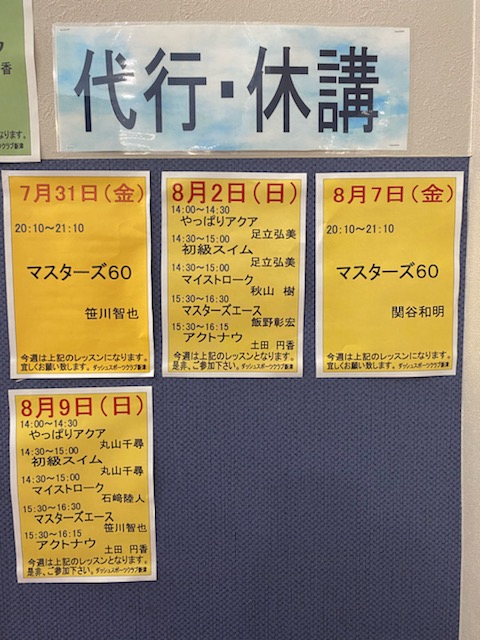 代行・休講
7月31日(金)
20:10～21:10
マスターズ60
笹川智也
今週は上記のレッスンになります。
宜しくお願い致します。ダッシュスポーツクラブ新津
8月2日(日)
14:00～14:30
やっぱりアクア
足立弘美
14:30～15:00
初級スイム
足立弘美
14:30～15:00
マイストローク
秋山 樹
15:30～16:30
マスターズエース
飯野彰宏
15:30～16:15
アクトナウ
土田 円香
今週は上記のレッスンとなります。
是非、ご参加下さい。ダッシュスポーツクラブ新津
8月7日(金)
20:10～21:10
マスターズ60
関谷和明
今週は上記のレッスンになります。
宜しくお願い致します。ダッシュスポーツクラブ新津
8月9日(日)
14:00～14:30
やっぱりアクア
丸山千尋
14:30～15:00
初級スイム
丸山千尋
14:30～15:00
マイストローク
石﨑陸人
15:30～16:30
マスターズエース
笹川智也
15:30～16:15
アクトナウ
土田 円香
今週は上記のレッスンとなります。
是非、ご参加下さい。ダッシュスポーツクラブ新津